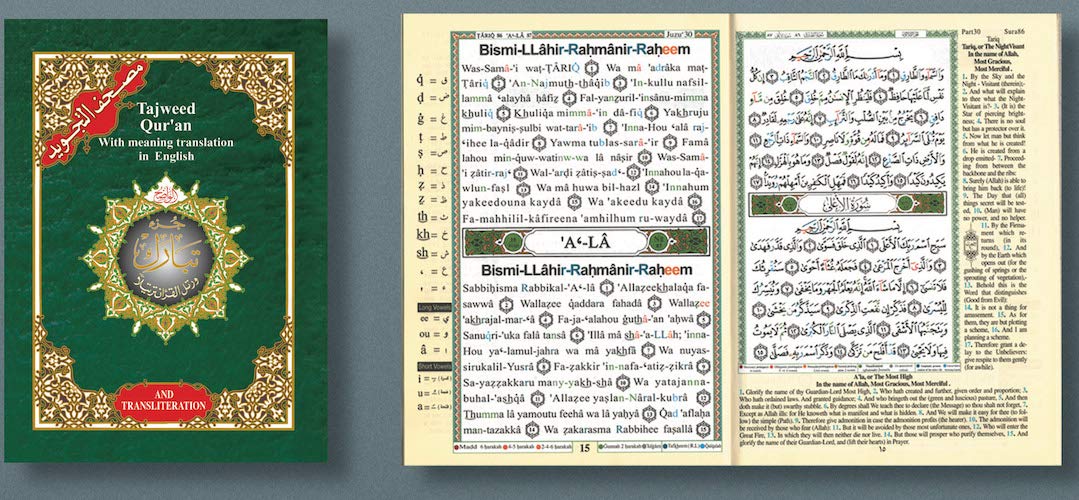 مصحف التجويد
Tajweed
Qur'an
With meaning translation
in English
جزء
تبارك
ورتل القرآن ترتيلا
AND
TRANSLITERATION
TÂRIQ 86 'A'-LÂ 87 Juzu'30
Bismi-LLâhir-Raḥmânir-Raḥeem
Was-Samâ-'i waṭ-ṬÂRIQ 1 Wa mâ 'adrâka maṭ-
Ṭâriq 2 'An-Najmuth-thâqib 3 'In-kullu nafsil-
lammâ ʿalayhâ ḥâfiẓ 4 Fal-yanẓuril-'insânu-mimma
khuliq 5 Khuliqa mimmâ-'in-dâ-fiq 6 Yakhruju
mim-bayniṣ-ṣulbi wat-tarâ-'ib 7 'Inna-Hou ʿalâ raj-
ʿihee la-qâdir 8 Yawma tublas-sarâ-'ir 9 Famâ
lahou min-quw-watinw-wa lâ nâṣir 10 Was-Samâ-
'i ẓâtir-rajʿ 11 Wal-'arḍi ẓâtiṣ-ṣadʿ 12 'Innahoula-qa-
wlun-faṣl 13 Wa mâ huwa bil-hazl 14 'Innahum
yakeedouna kaydâ 15 Wa 'akeedu kaydâ 16
Fa-mahhilil-kâfireena 'amhilhum ru-waydâ 17
'Aʿ-LÂ
Bismi-LLâhir-Raḥmânir-Raḥeem
Sabbiḥisma Rabbikal-'Aʿ-lâ 1 'Allazeekhalaqa fa-
sawwâ 2 Wallazee qaddara fahadâ 3 Wallazee
'akhrajal-mar-ʿâ 4 Fa-ja-ʿalahou ġuthâ-'an 'aḥwâ 5
Sanuqri-'uka falâ tansâ 6 'Illâ mâ shâ-'a-LLâh; 'inna-
Hou yaʿ-lamul-jahra wa mâ yakhfâ 7 Wa nuyas-
sirukalil-Yusrâ 8 Fa-ẓakkir 'in-nafa-ʿatiẓ-ẓikrâ 9
Sa-yaẓẓakkaru many-yakh-shâ 10 Wa yatajanna-
buhal-'ashqâ 11 'Allazee yaṣlan-Nâral-kubrâ 12
Thumma lâ yamoutu feehâ wa lâ yaḥyâ 13 Qad 'aflaḥa
man-tazakkâ 14 Wa ẓakarasma Rabbihee faṣallâ 15
Madd 6 ḥarakah 4-5 ḥarakah 2-4-6 ḥarakah Gunnah 2 ḥarakah
15
q = ق
ḍ = ض
ġ = غ
ṭ = ط
ṣ = ص
ḥ = ح
ẓ = ظ
z = ذ
th = ث
kh = خ
sh = ش
Long Vowels
ee = ي
ou = و
â = ا
Short Vowels
i =
u =
a =
Part30 Sura86
Tariq
Tariq, or The NightVisitant
In the name of Allah,
Most Gracious,
Most Merciful .
1. By the Sky and the
Night - Visitant (therein);-
2. And what will explain
to thee what the Night-
Visitant is?- 3. (It is) the
Star of piercing bright-
ness; 4. There is no soul
but has a protector over it.
5. Now let man but think
from what he is created!
6. He is created from a
drop emitted- 7. Proceed-
ing from between the
backbone and the ribs:
8. Surely (Allah) is able to
bring him back (to life)!
9. The Day that (all)
things secret will be test-
ed, 10. (Man) will have
no power, and no helper.
11. By the Firma-
ment which re-
turns (in its
round), 12. And
by the Earth which
opens out (for the
gushing of springs or the
sprouting of vegetation),-
13. Behold this is the
Word that distinguishes
(Good from Evil):
14. It is not a thing for
amusement. 15. As for
them, they are but plotting
a scheme, 16. And I am
planning a scheme.
17. Therefore grant a de-
lay to the Unbelievers:
give respite to them gently
(for awhile).
بِسْمِ اللَّهِ الرَّحْمَٰنِ الرَّحِيمِ
وَالسَّمَاءِ وَالطَّارِقِ ١ وَمَا أَدْرَاكَ مَا الطَّارِقُ ٢ النَّجْمُ الثَّاقِبُ ٣ إِن كُلُّ
نَفْسٍ لَّمَّا عَلَيْهَا حَافِظٌ ٤ فَلْيَنظُرِ الْإِنسَانُ مِمَّ خُلِقَ ٥ خُلِقَ مِن مَّاءٍ
دَافِقٍ ٦ يَخْرُجُ مِن بَيْنِ الصُّلْبِ وَالتَّرَائِبِ ٧ إِنَّهُ عَلَىٰ رَجْعِهِ لَقَادِرٌ ٨
يَوْمَ تُبْلَى السَّرَائِرُ ٩ فَمَا لَهُ مِن قُوَّةٍ وَلَا نَاصِرٍ ١٠ وَالسَّمَاءِ ذَاتِ الرَّجْعِ ١١
وَالْأَرْضِ ذَاتِ الصَّدْعِ ١٢ إِنَّهُ لَقَوْلٌ فَصْلٌ ١٣ وَمَا هُوَ بِالْهَزْلِ ١٤ إِنَّهُمْ
يَكِيدُونَ كَيْدًا ١٥ وَأَكِيدُ كَيْدًا ١٦ فَمَهِّلِ الْكَافِرِينَ أَمْهِلْهُمْ رُوَيْدًا ١٧
سُورَةُ الْأَعْلَىٰ
بِسْمِ اللَّهِ الرَّحْمَٰنِ الرَّحِيمِ
سَبِّحِ اسْمَ رَبِّكَ الْأَعْلَى ١ الَّذِي خَلَقَ فَسَوَّىٰ ٢ وَالَّذِي قَدَّرَ فَهَدَىٰ
٣ وَالَّذِي أَخْرَجَ الْمَرْعَىٰ ٤ فَجَعَلَهُ غُثَاءً أَحْوَىٰ ٥ سَنُقْرِئُكَ
فَلَا تَنسَىٰ ٦ إِلَّا مَا شَاءَ اللَّهُ إِنَّهُ يَعْلَمُ الْجَهْرَ وَمَا يَخْفَىٰ ٧ وَنُيَسِّرُكَ
لِلْيُسْرَىٰ ٨ فَذَكِّرْ إِن نَّفَعَتِ الذِّكْرَىٰ ٩ سَيَذَّكَّرُ مَن يَخْشَىٰ ١٠
وَيَتَجَنَّبُهَا الْأَشْقَى ١١ الَّذِي يَصْلَى النَّارَ الْكُبْرَىٰ ١٢ ثُمَّ لَا يَمُوتُ
فِيهَا وَلَا يَحْيَىٰ ١٣ قَدْ أَفْلَحَ مَن تَزَكَّىٰ ١٤ وَذَكَرَ اسْمَ رَبِّهِ فَصَلَّىٰ ١٥
A'la, or The Most High
In the name of Allah, Most Gracious, Most Merciful .
1. Glorify the name of thy Guardian-Lord Most High, 2. Who hath created and further, given order and proportion; 3.
Who hath ordained laws. And granted guidance; 4. And who bringeth out the (green and luscious) pasture, 5. And then
doth make it (but) swarthy stubble. 6. By degrees shall We teach thee to declare (the Message) so thou shalt not forget, 7.
Except as Allah wills: for He knoweth what is manifest and what is hidden. 8. And We will make it easy for thee (to fol-
low) the simple (Path). 9. Therefore give admonition in case the admonition profits (the hearer). 10. The admonition will
be received by those who fear (Allah): 11. But it will be avoided by those most unfortunate ones, 12. Who will enter the
Great Fire, 13. In which they will then neither die nor live. 14. But those will prosper who purify themselves, 15. And
glorify the name of their Guardian-Lord, and (lift their hearts) in Prayer.
١٥